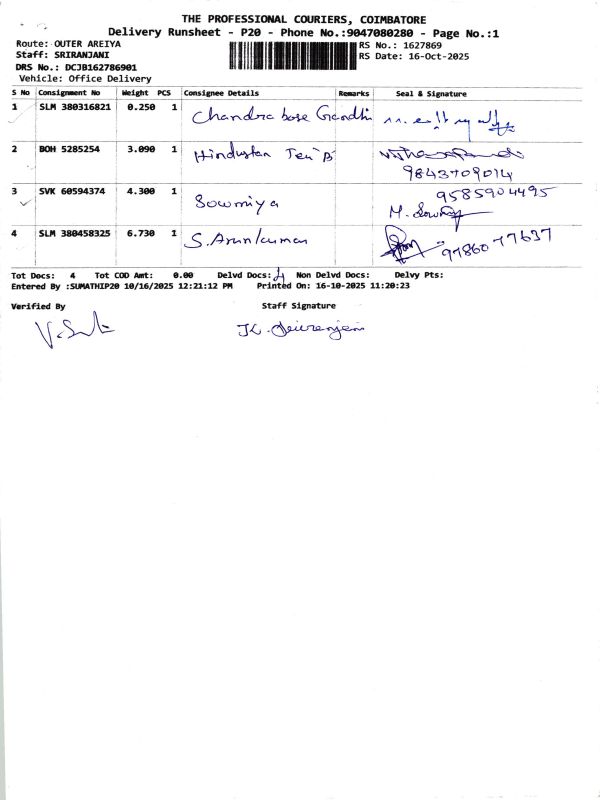 THE PROFESSIONAL COURIERS, COIMBATORE
Delivery Runsheet - P20 - Phone No.:9047080280 - Page No.:1
Route: OUTER AREIYA
Staff: SRIRANJANI
DRS No.: DCJB162786901
Vehicle: Office Delivery
RS No.: 1627869
RS Date: 16-Oct-2025
S No Consignment No Weight PCS Consignee Details Remarks Seal & Signature
1 SLM 380316821 0.250 1 Chandra bose Gandhi
2 BOH 5285254 3.090 1 Hindustan 9843709014
3 SVK 60594374 4.300 1 Sowmiya 9585904495
M. Sowmiya
4 SLM 380458325 6.730 1 S. Arunkumar 9786077637
Tot Docs: 4 Tot COD Amt: 0.00 Delvd Docs: 4 Non Delvd Docs: Delvy Pts:
Entered By :SUMATHIP20 10/16/2025 12:21:12 PM Printed On: 16-10-2025 11:20:23
Verified By Staff Signature